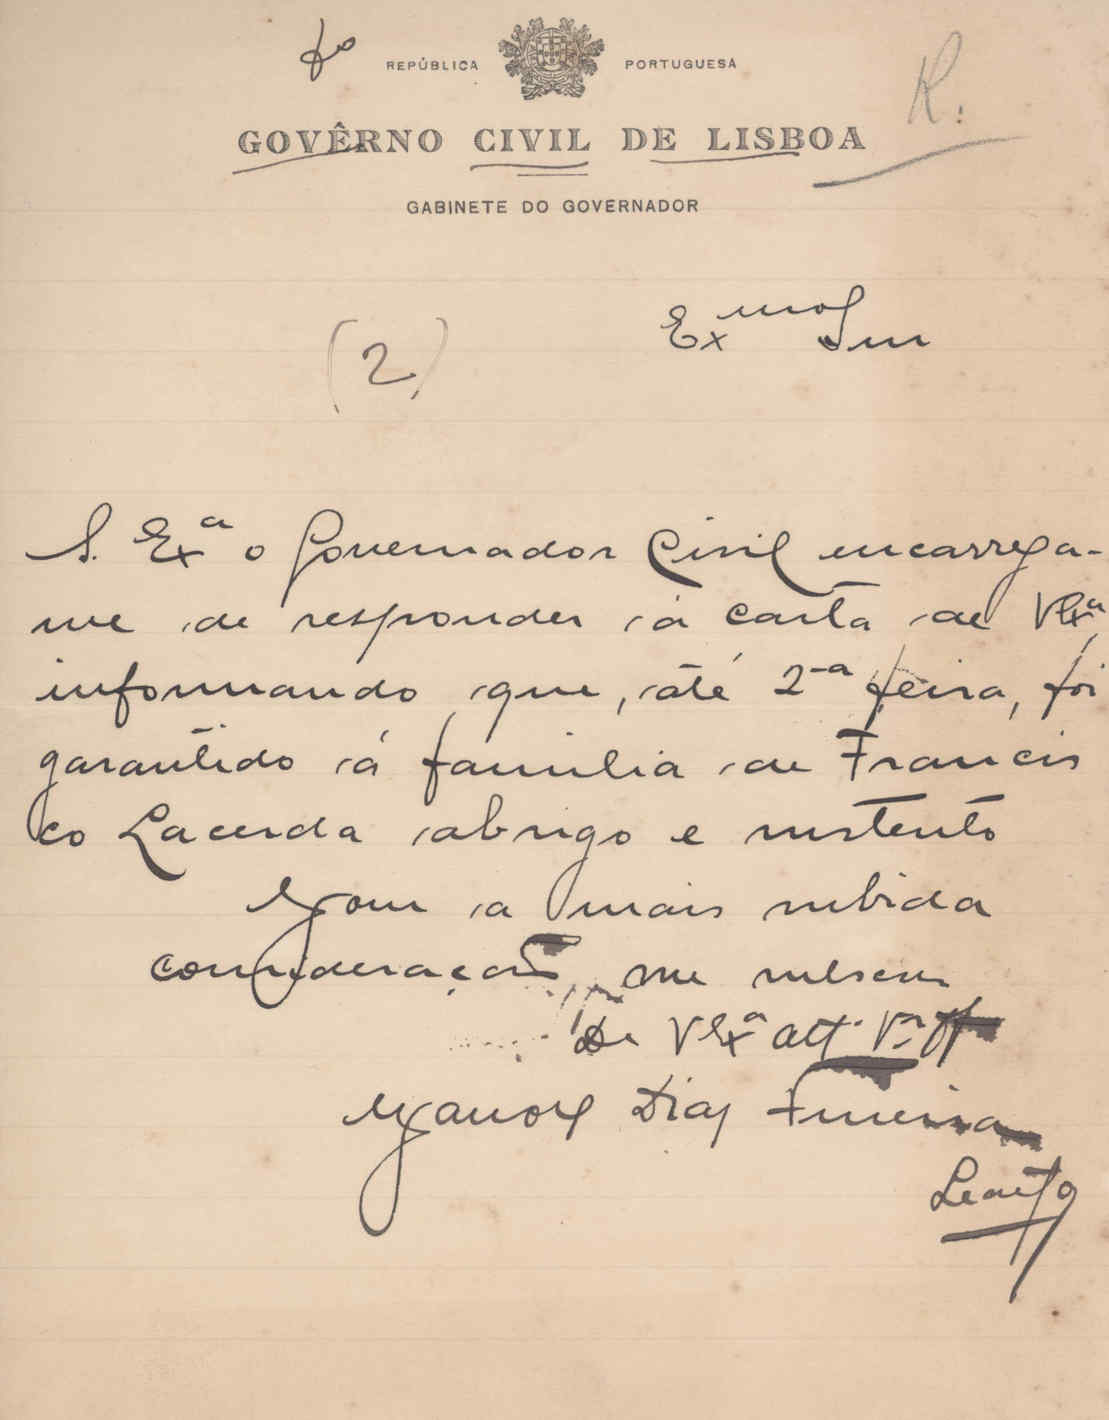 REPÚBLICA PORTUGUESA
R.
GOVÊRNO CIVIL DE LISBOA
GABINETE DO GOVERNADOR
Exmo Snr
(2)
S. Exª o Governador Civil encarrega-
me de responder á carta de V Exª
informando que, até 2-a feira, foi
garantido á familia de Francis
co Lacerda abrigo e sustento
Com a mais subida
consideração, me subscrevo
De V Exª att. Vor
Manoel Dias Ferreira